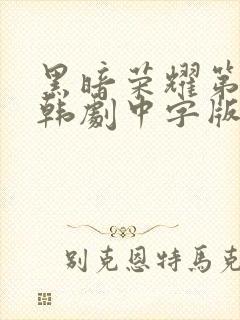 黑暗荣耀第
韩劇中字版
别克恩特馬克